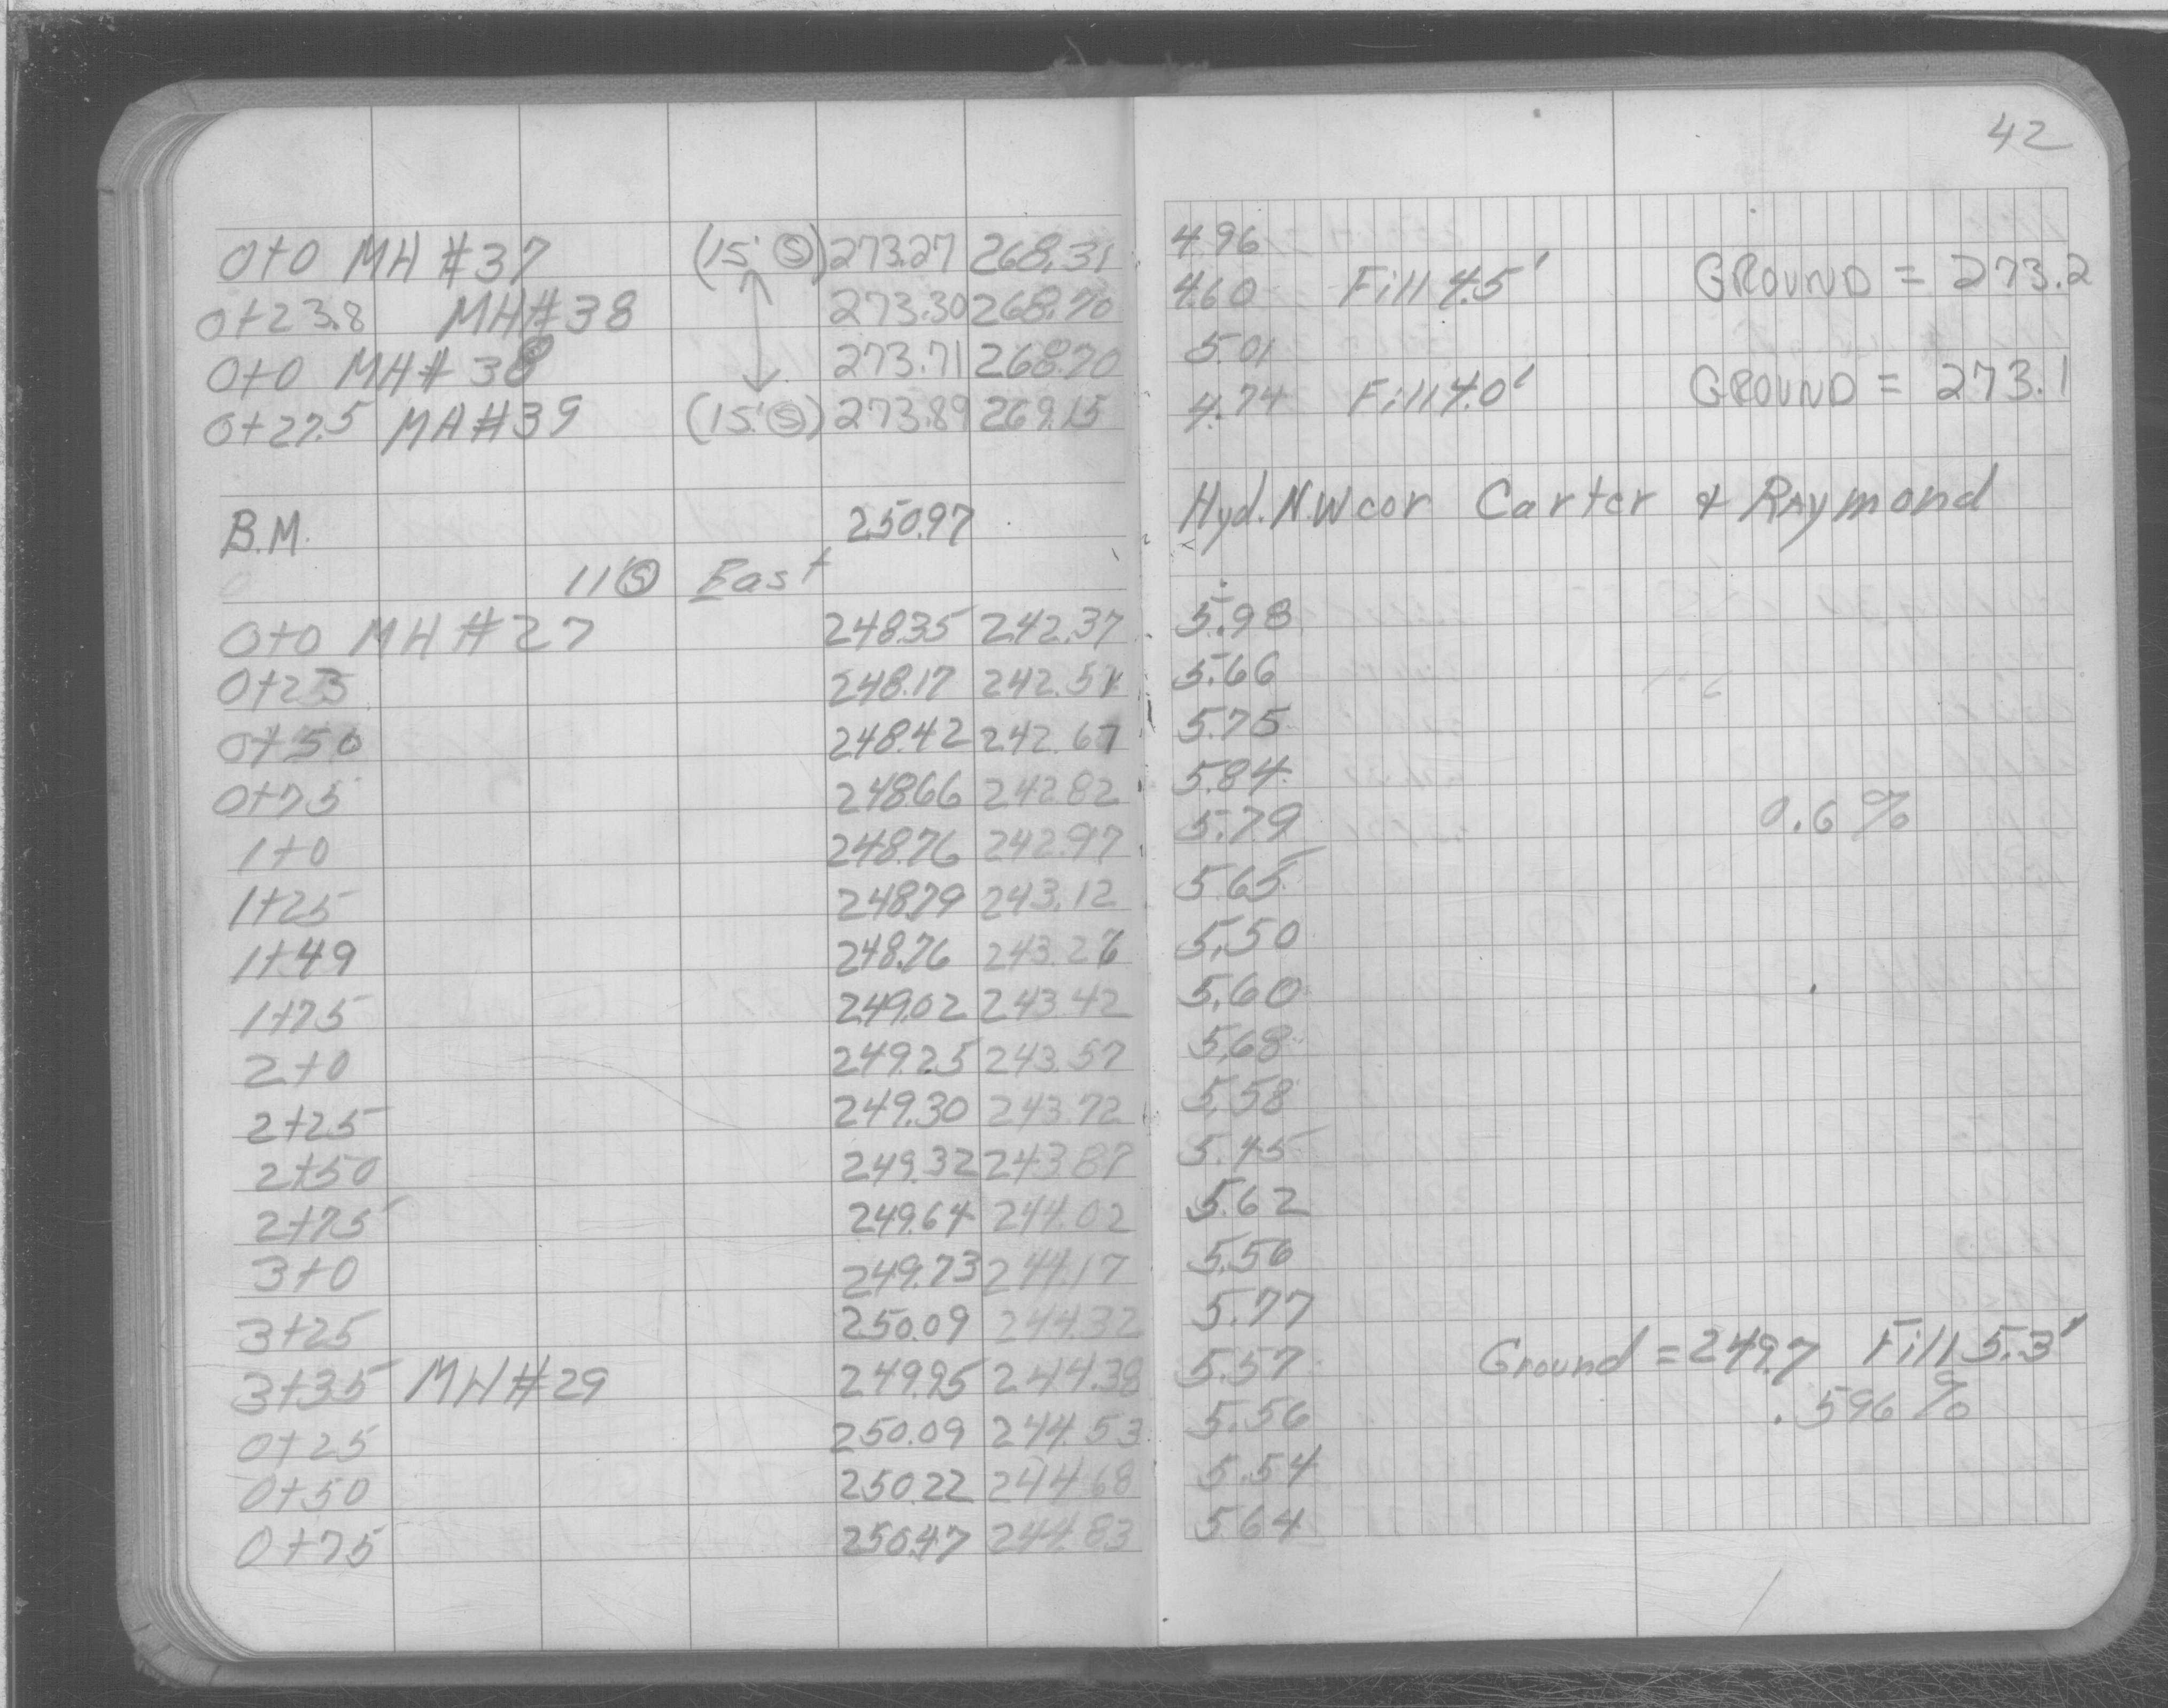 42
0+0 MH #37 (15' S) 273.27 268.31 4.96
0+23.8 MH#38 273.30 268.70 4.60 Fill 4.5' GROUND = 273.2
0+0 MH# 38 273.71 268.70 5.01
0+27.5 MH#39 (15' S) 273.89 269.15 4.74 Fill 4.0' GROUND = 273.1
B.M. 250.97 Hyd. N.W cor Carter & Raymond
11 S East
0+0 MH #27 248.35 242.37 5.98
0+25 248.17 242.51 5.66
0+50 248.42 242.67 5.75
0+75 248.66 242.82 5.84
1+0 248.76 242.97 5.79 0.6%
1+25 248.79 243.12 5.65
1+49 248.76 243.26 5.50
1+75 249.02 243.42 5.60
2+0 249.25 243.57 5.68
2+25 249.30 243.72 5.58
2+50 249.32 243.87 5.45
2+75 249.64 244.02 5.62
3+0 249.73 244.17 5.56
3+25 250.09 244.32 5.77
3+35 MH#29 249.95 244.38 5.57 Ground = 249.7 Fill 5.3'
0+25 250.09 244.53 5.56 .596%
0+50 250.22 244.68 5.54
0+75 250.47 244.83 5.64